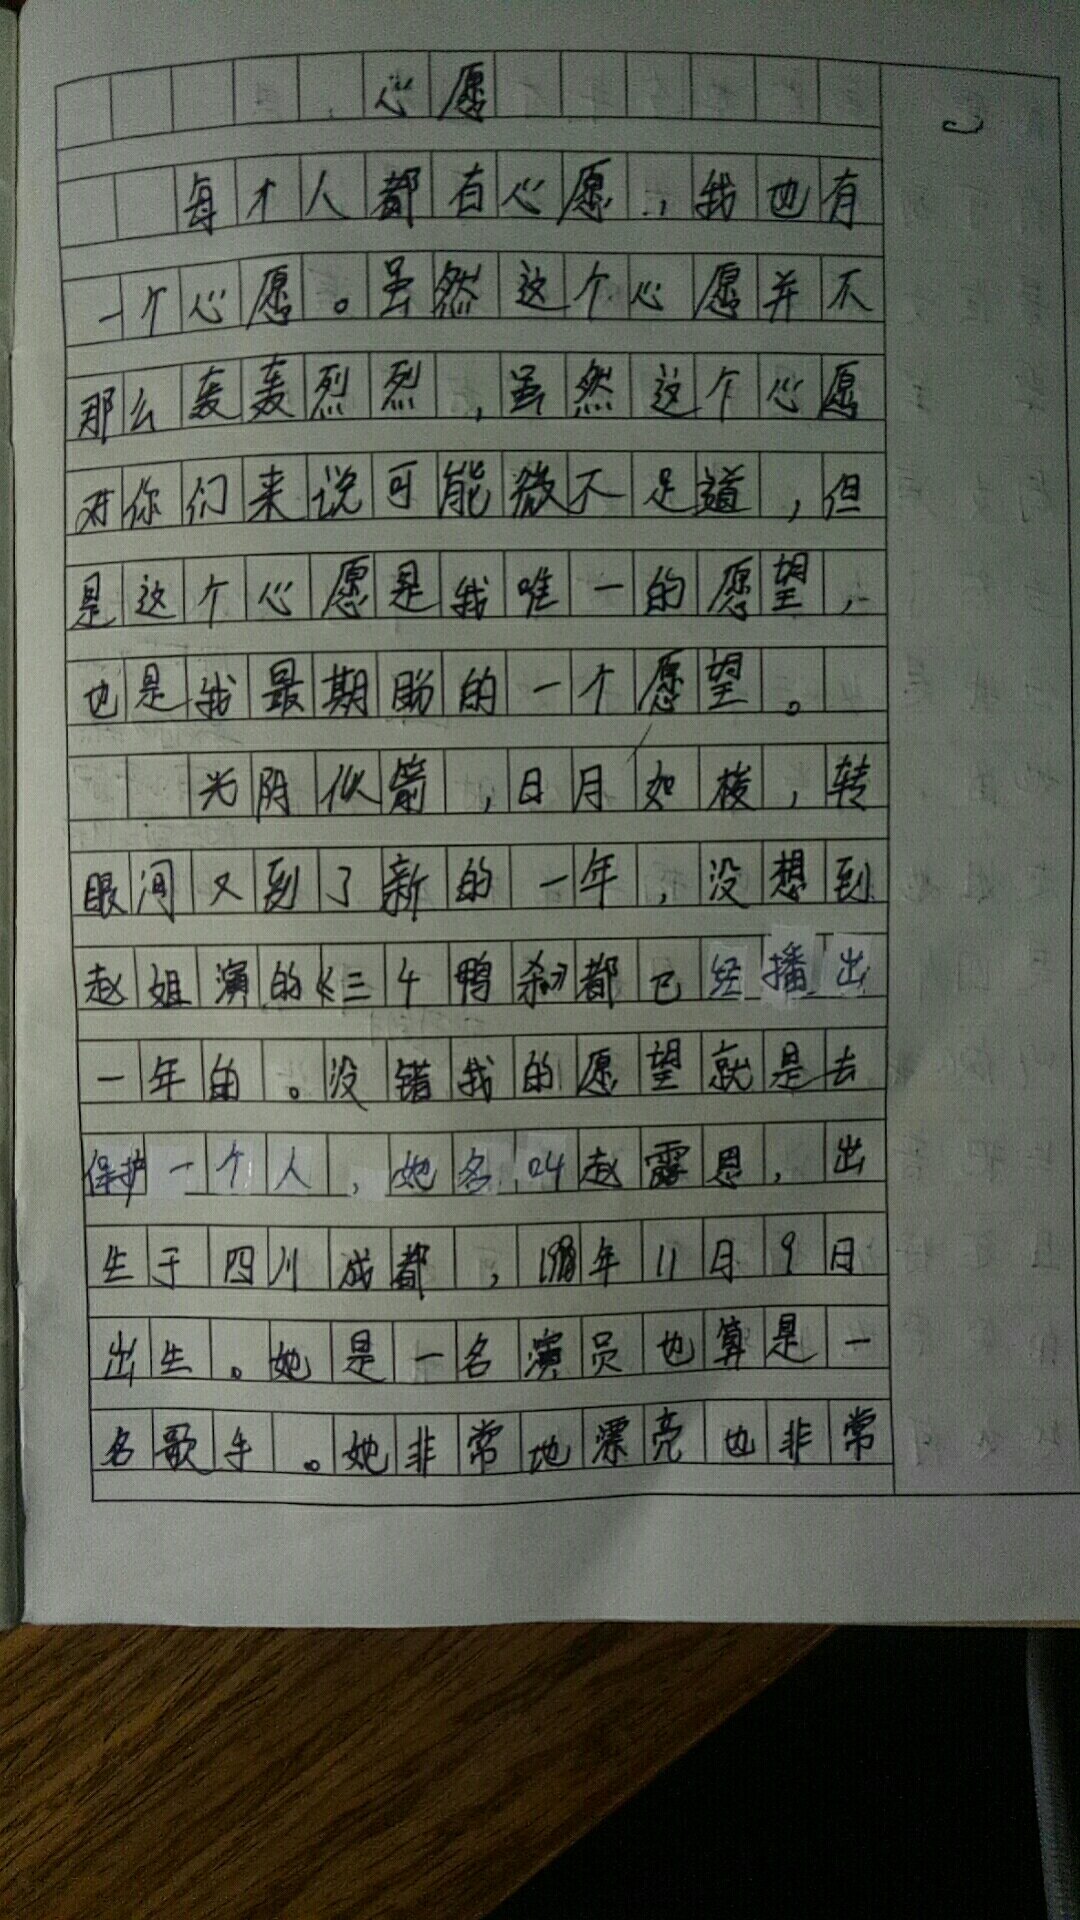 心愿
每个人都有心愿，我也有
一个心愿。虽然这个心愿并不
那么轰轰烈烈，虽然这个心愿
对你们来说可能微不足道，但
是这个心愿是我唯一的愿望，
也是我最期盼的一个愿望。
光阴似箭，日月如梭，转
眼间又到了新的一年，没想到
赵姐演的《三千鸦杀》都已经播出
一年的。没错我的愿望就是去
保护一个人，她名叫赵露思，出
生于四川成都，年11月9日
出生。她是一名演员也算是一
名歌手。她非常地漂亮也非常